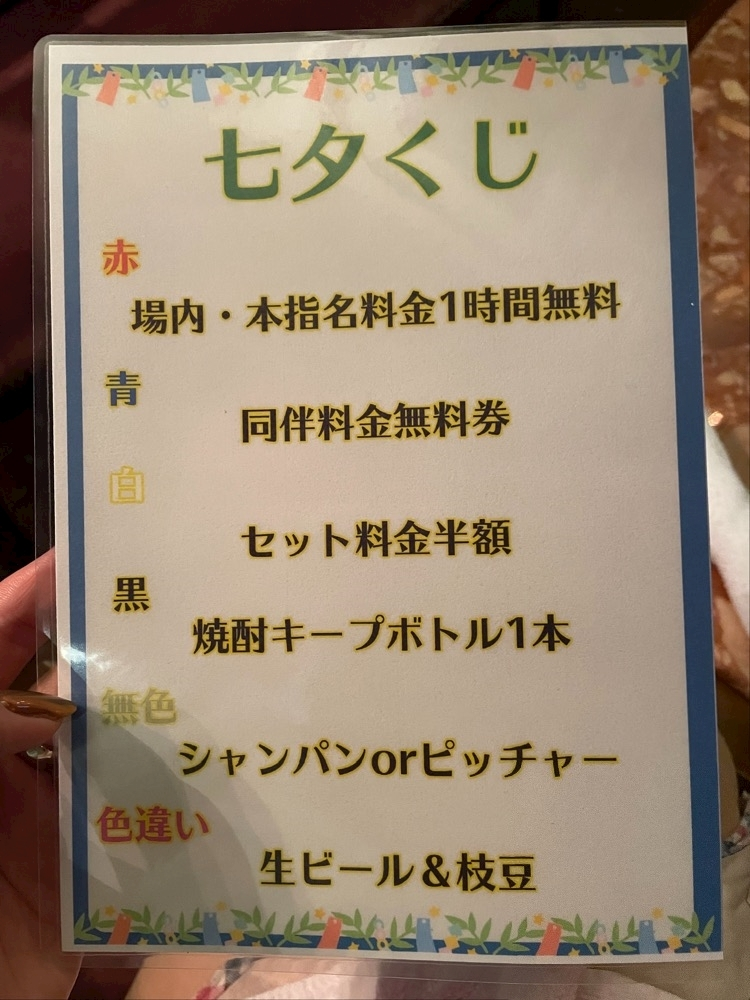 七夕くじ
赤
場内・本指名料金1時間無料
青
同伴料金無料券
白
セット料金半額
黒
焼酎キープボトル1本
無色
シャンパンorピッチャー
色違い
生ビール&枝豆